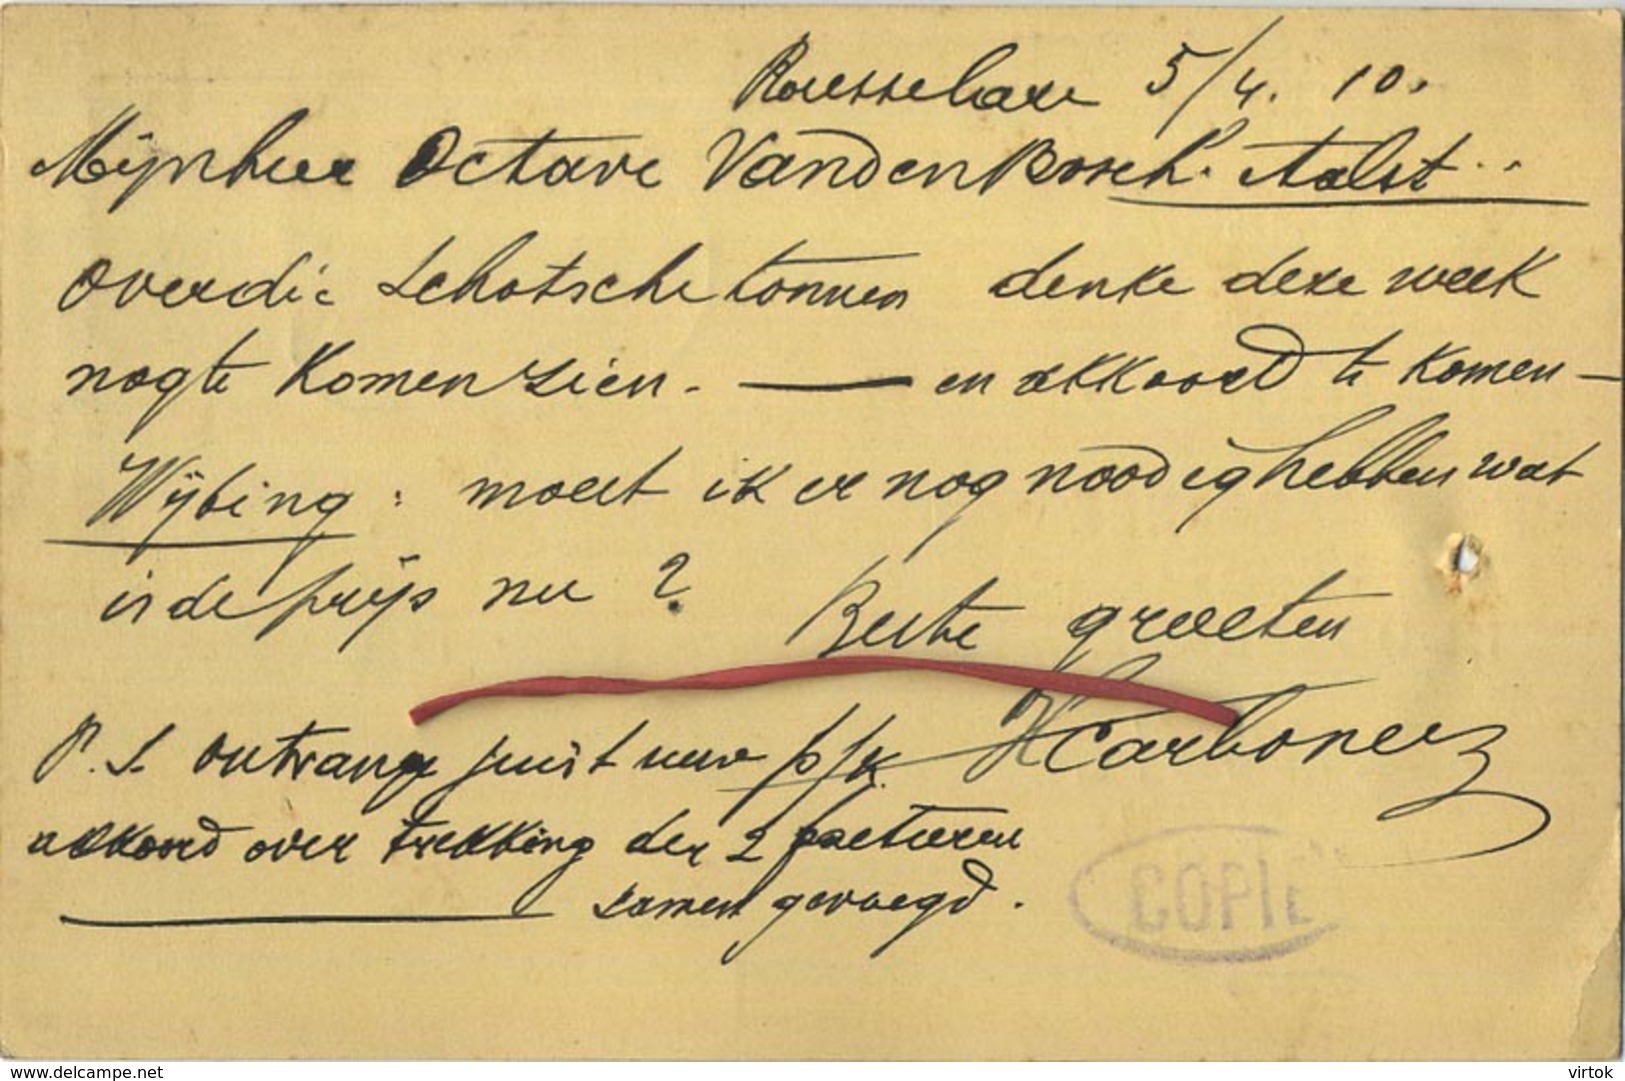 Rousselare 5/4. 10.
Mijnheer Octave VandenBosch. Aalst..
Over die Schotsche tonnen denke deze week
nog te komen zien. — en akkoord te komen —
Wijting : moest ik er nog noodig hebben wat
is de prijs nu ?
Beste groeten
H Carbonez
P. S. ontvange juist uwe p/k.
akkoord over trekking der 2 facturen
samen gevoegd.
COPIE
delcampe.net
virtok